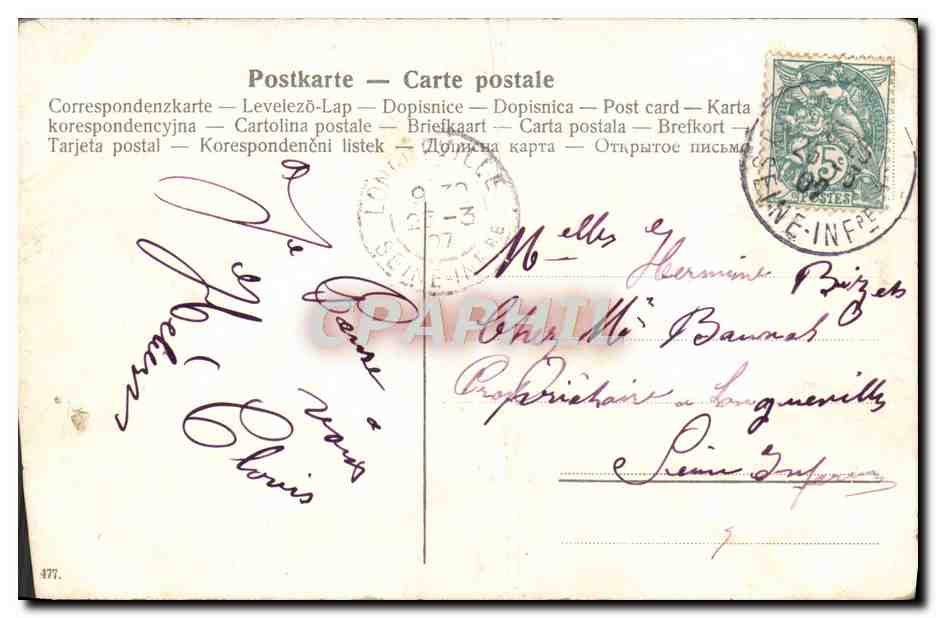 Postkarte — Carte postale
Correspondenzkarte — Levelezö-Lap — Dopisnice — Dopisnica — Post card — Karta
korespondencyjna — Cartolina postale — Briefkaart — Carta postala — Brefkort —
Tarjeta postal — Korespondenčni listek — Дописна карта — Открытое письмо
LONGUEVILLE
9 30
-3
07
SEINE-INFRE
5c
POSTES
07
SEINE-INFRE
Je Pense à
vous
Clovis
Melles
Hermine
Chez Mr
Propriétaire a Longueville
Seine Inf
CPARAMA
477.